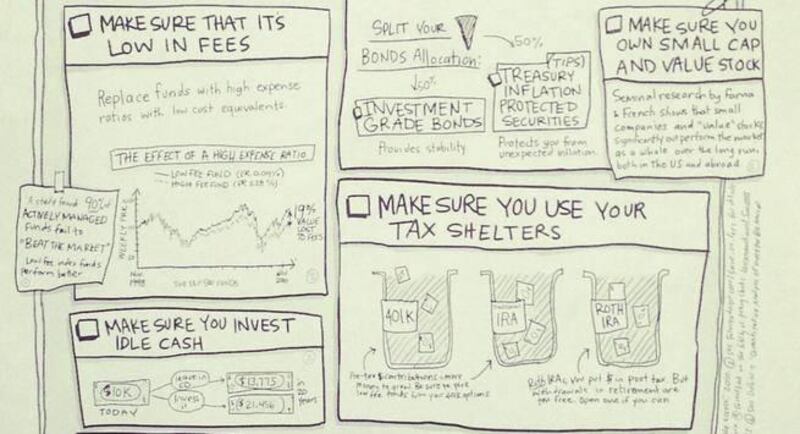 MAKE SURE THAT IT'S
LOW IN FEES
Replace funds with high expense
ratios with low cost equivalents.
THE EFFECT OF A HIGH EXPENSE RATIO
LOW FEE FUND
HIGH FEE FUND
19%
VALUE
LOST
TO FEES
WEEKLY PRICE
NOV
1998
90% of
ACTIVELY MANAGED
Funds fail to
"BEAT THE MARKET"
Low fee index funds
perform better
MAKE SURE YOU INVEST
IDLE CASH
$10K
TODAY
leave in
CD
Invest
it
$13,775
$21,456
in
20
years
SPLIT YOUR
BONDS ALLOCATION:
50%
50%
INVESTMENT
GRADE BONDS
Provides stability
(TIPS)
TREASURY
INFLATION
PROTECTED
SECURITIES
Protects you from
unexpected inflation.
MAKE SURE YOU
OWN SMALL CAP
AND VALUE STOCK
Seminal research by Fama
& French shows that small
companies and "value" stocks
significantly outperform the market
as a whole over the long run,
both in the US and abroad
MAKE SURE YOU USE YOUR
TAX SHELTERS
401K
IRA
ROTH
IRA
Pre-tax $ contributions = more
money to grow. Be sure to pick
low fee funds from your 401K options.
Roth IRAs, you put $ in post tax. But
withdrawals in retirement are
tax free. Open one if you can